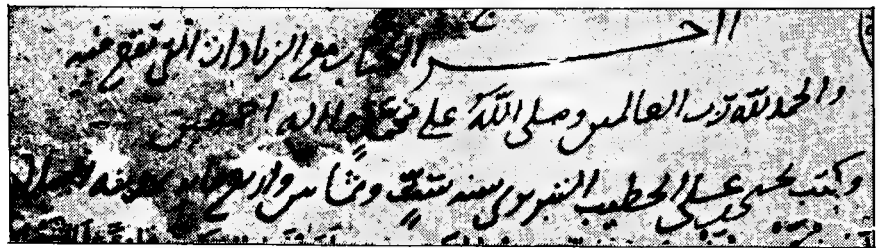 آخر الكتاب مع الزيادات التي تقع فيه
والحمد لله رب العالمين وصلى الله على محمد واله اجمعين
وكتب يحيى بن علي الخطيب التبريزي سنه ست وثمانين واربع مائه